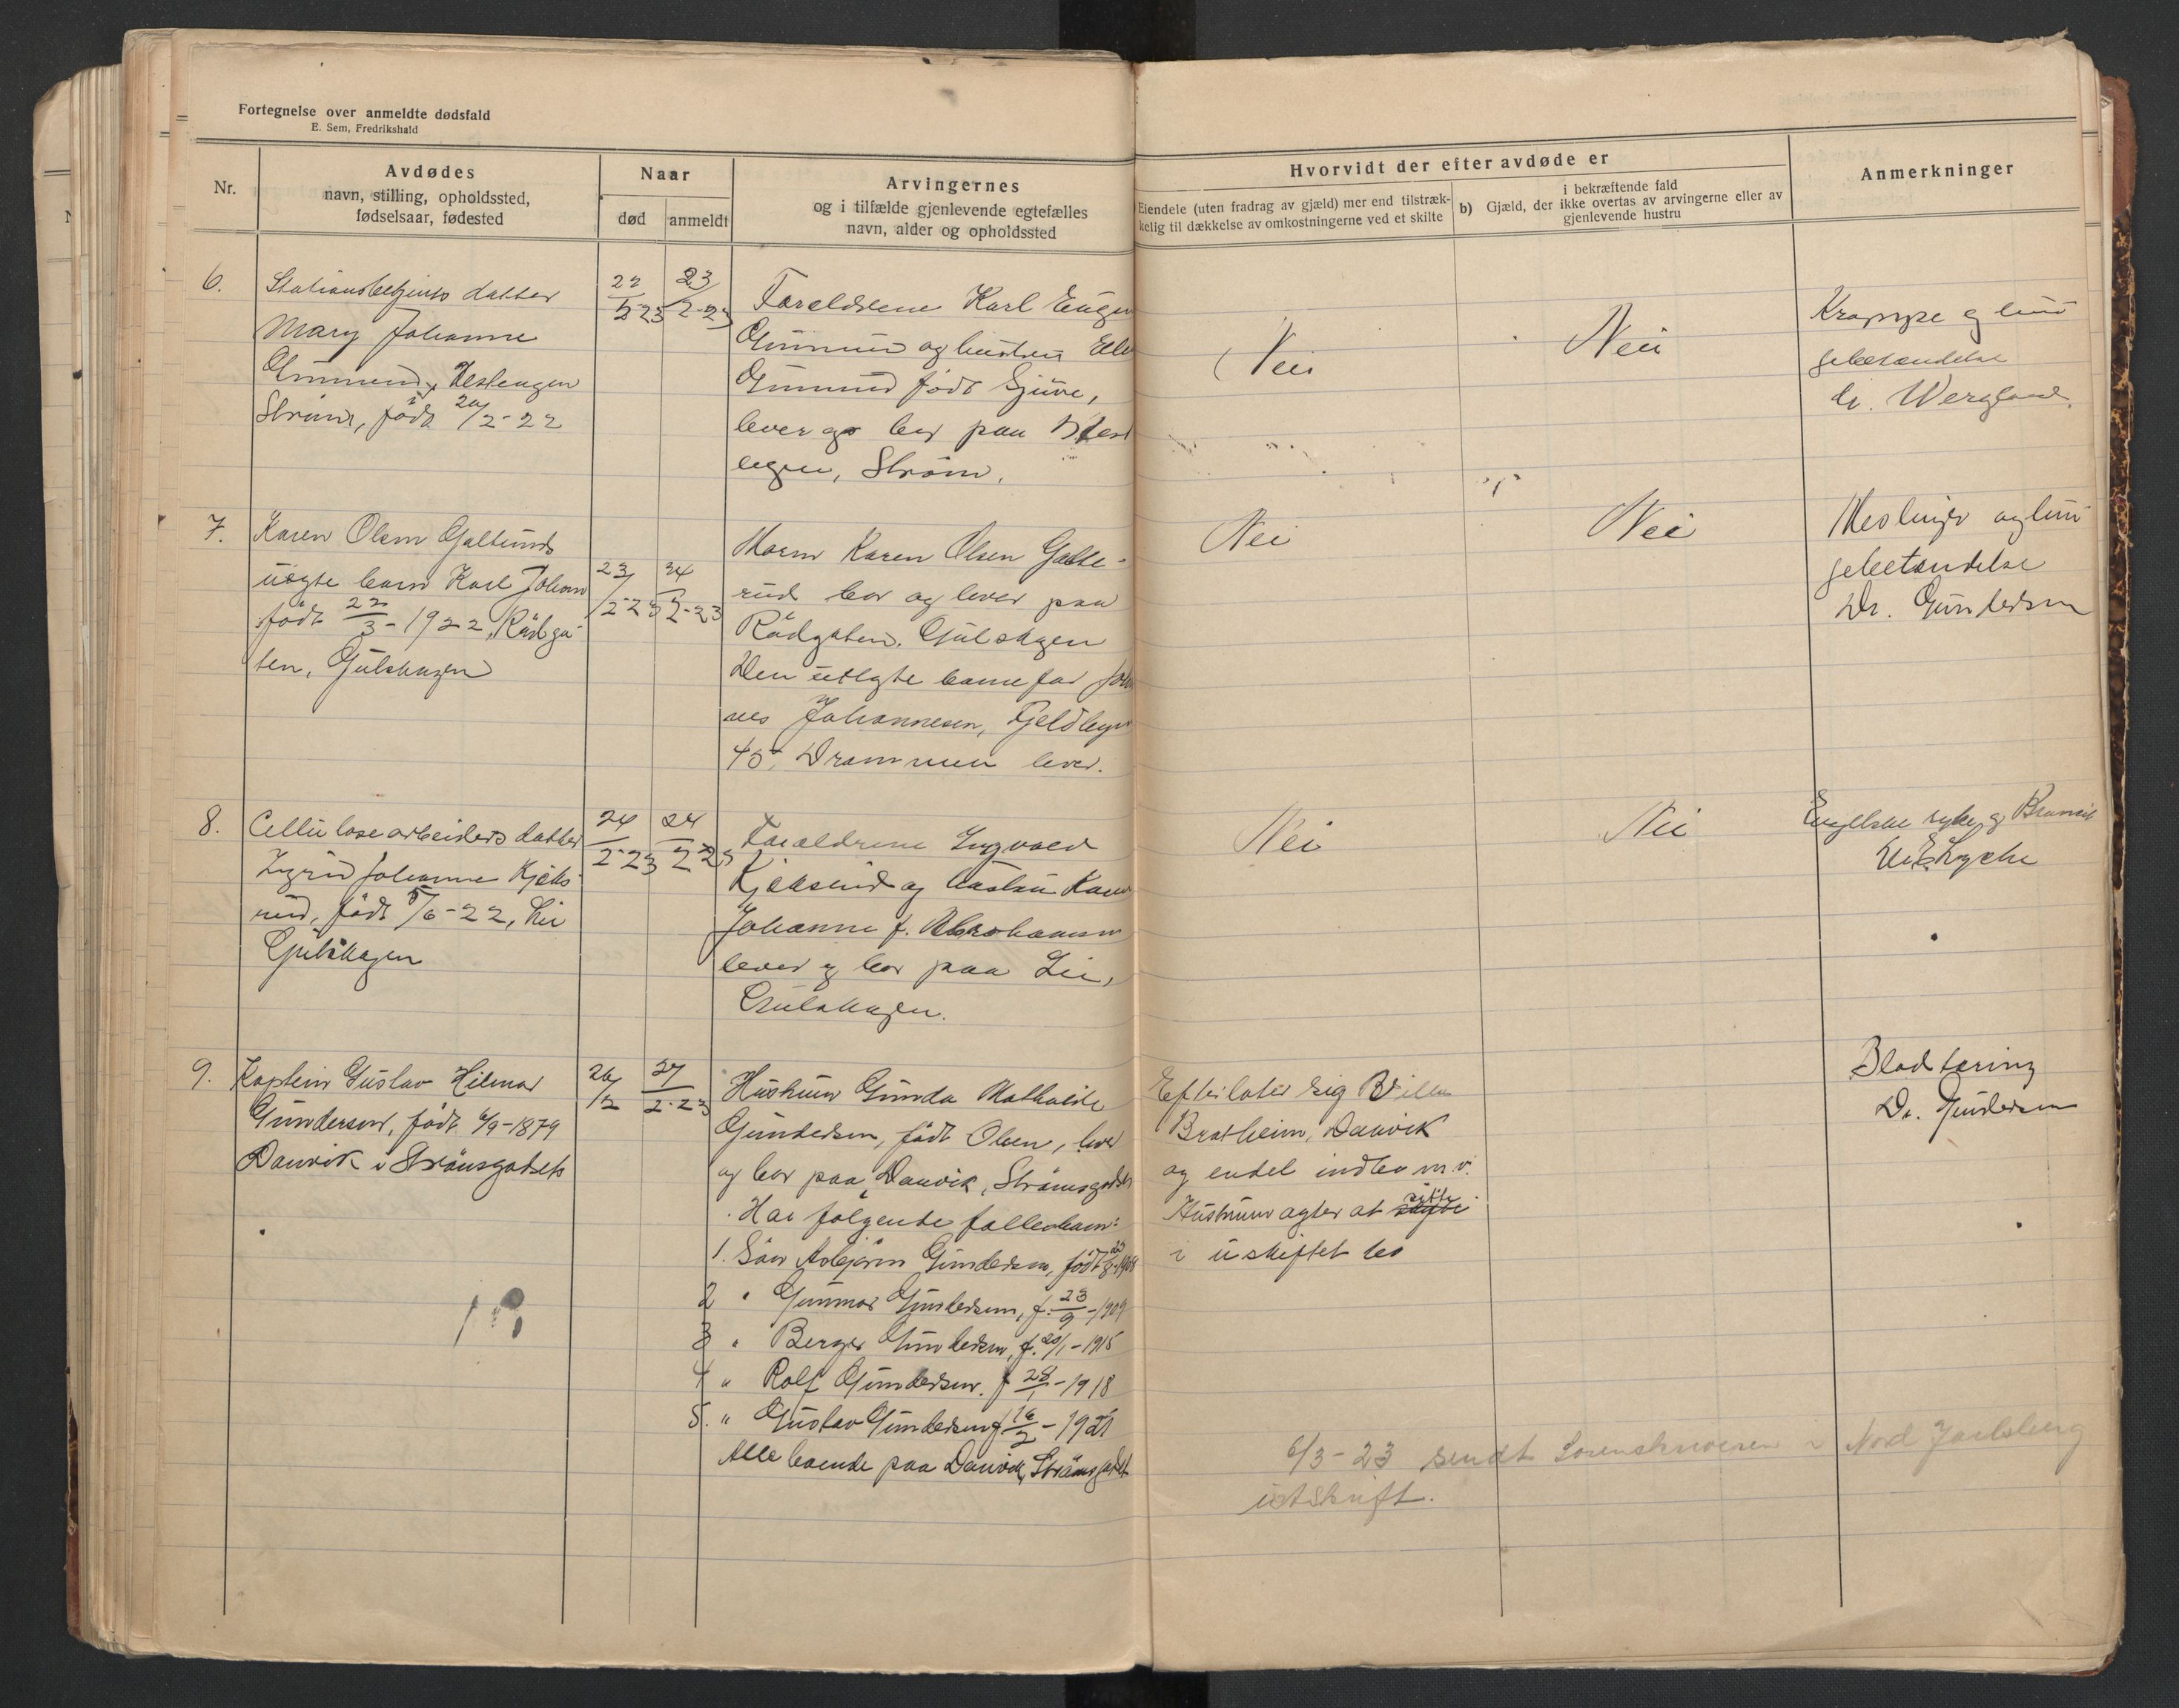 Fortegnelse over anmeldte dødsfald
E. Sem, Fredrikshald
Nr.
Avdødes
navn, stilling, opholdssted,
fødselsaar, fødested
Naar
død
anmeldt
Arvingernes
og i tilfælde gjenlevende egtefælles
navn, alder og opholdssted
Hvorvidt der efter avdøde er
Eiendele (uten fradrag av gjæld) mer end tilstræk-
kelig til dækkelse av omkostningerne ved et skilte
b) Gjæld, der ikke overtas av arvingerne eller av
i bekræftende fald
gjenlevende hustru
Anmerkninger
6.
Stationsbetjents datter
Mary Johanne
Strøm, født 20/2-22
22/2-23
23/2-23
Forældrene Karl Eugen
og hustru
født
lever og bor paa
Strøm.
Nei
Nei
Krampe og lun
gebetændelse
dr. Wergland.
7.
Karen Olsen
uegte barn Karl Johan
født 22/3-1922, Rådga-
ten, Gulskogen
23/2-23
24/2-23
Moren Karen Olsen Galte-
rud bor og lever paa
Rådgaten, Gulskogen
Den utlagte barnefar
nes Johannesen,
40, Drammen lever.
Nei
Nei
Meslinger og lun
gebetændelse
Dr. Gundersen
8.
Cellulosearbeiders datter
Ingrid Johanne Kjeks
rud, født 5/6-22, Lie
Gulskogen
24/2-23
24/2-23
Forældrene Ingvald
Kjeksrud og hustru Karen
Johanne f. Abrahamsen
lever og bor paa Lie,
Gulskogen.
Nei
Nei
Engelske syke og
Lyche
9.
Kaptein Gustav Hilmar
Gundersen, født 4/9-1879
Danvik i Strømsgodset
26/2
27/2-23
Hustruen Gunda Mathilde
Gundersen, født Olsen, lever
og bor paa Danvik, Strømsgodset
Har følgende fællesbarn:
1. Søn Asbjørn Gundersen, født
2 " Gunnar Gundersen, f. 23/9-1909
3 " Berger Gundersen, f. 20/1-1915
4 " Rolf Gundersen. f 28/1-1918
5. " Gustav Gundersen f 16/2-1921
Alle boende paa Danvik, Strømsgodset
Efterlater sig Villa
Bratheim, Danvik
og endel indbo m.v.
Hustruen agter at sitte
i uskiftet bo
Blodtæring
Dr. Gundersen
6/3-23 sendt Sorenskriveren i Nord Jarlsberg
utskrift.